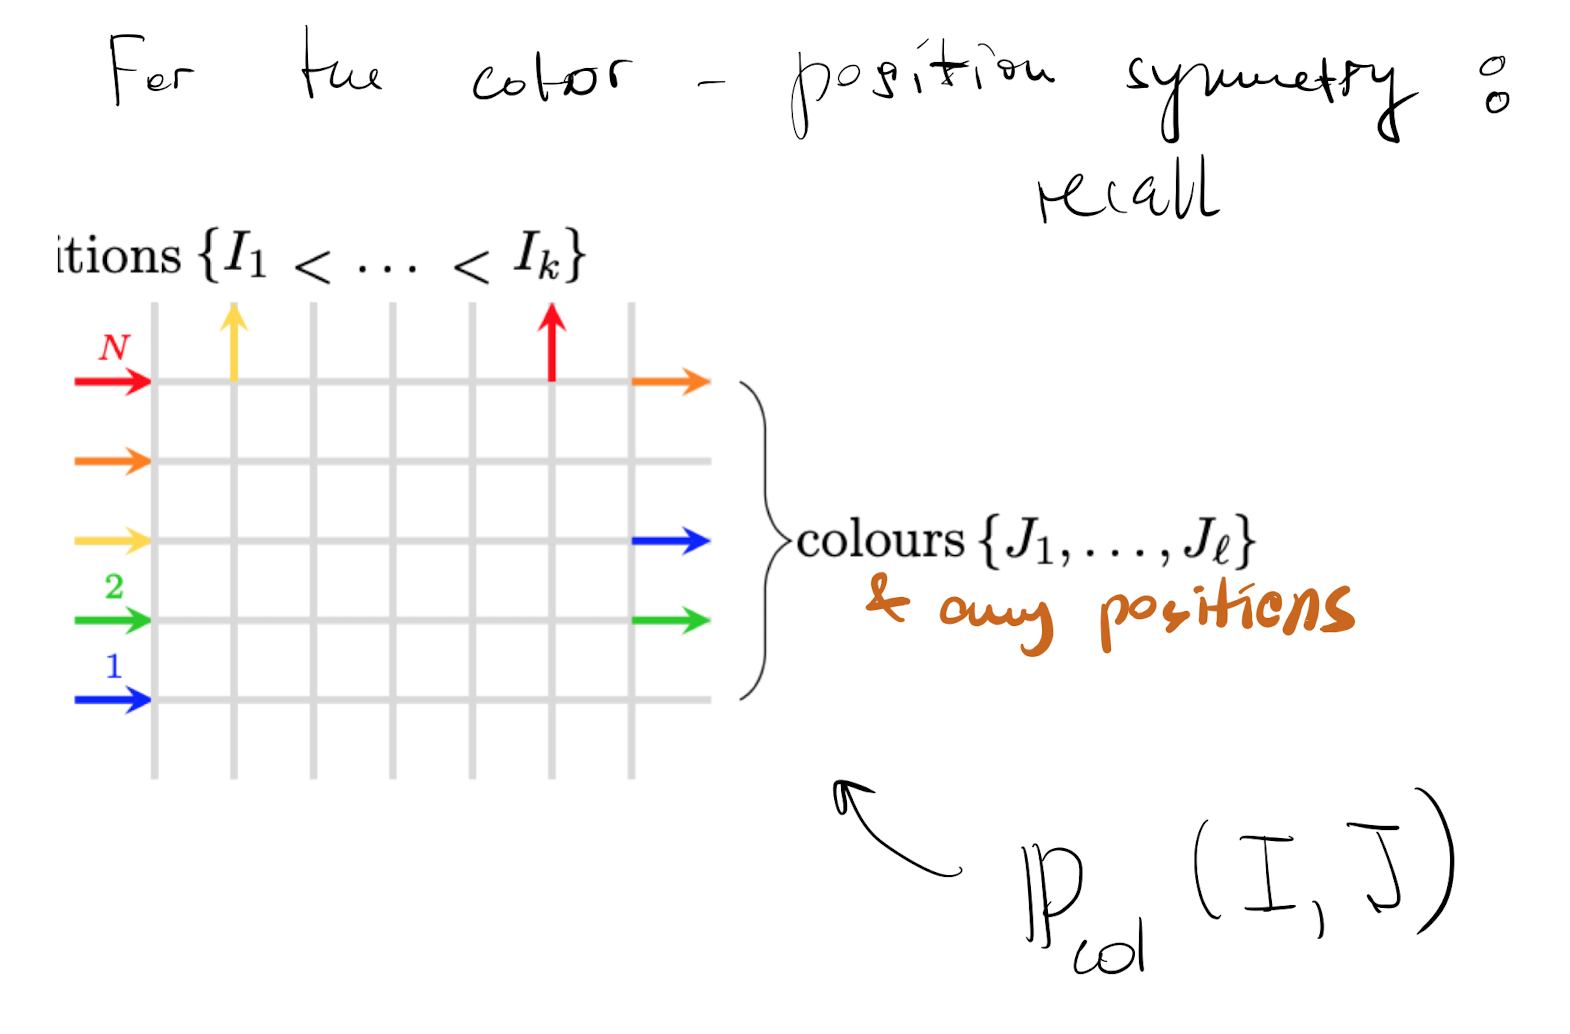 For the color - position symmetry :
recall
itions {I₁ < ... < Iₖ}
N
2
1
colours {J₁, ..., J_ℓ}
& any positions
ℙ_col (I, J)